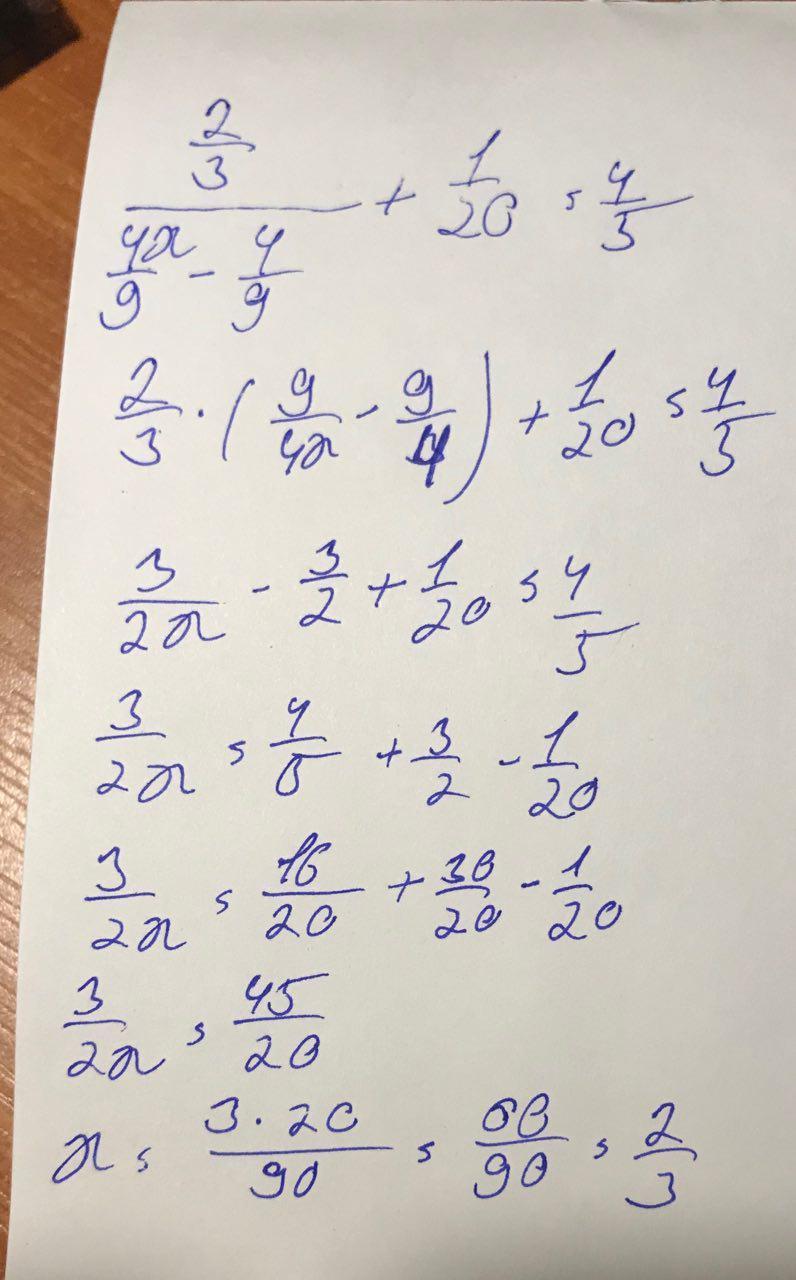 (2/3)/(4x/9 - 4/9) + 1/20 = 4/5
2/3 · (9/4x - 9/4) + 1/20 = 4/5
3/2x - 3/2 + 1/20 = 4/5
3/2x = 4/5 + 3/2 - 1/20
3/2x = 16/20 + 30/20 - 1/20
3/2x = 45/20
x = 3·20/90 = 60/90 = 2/3